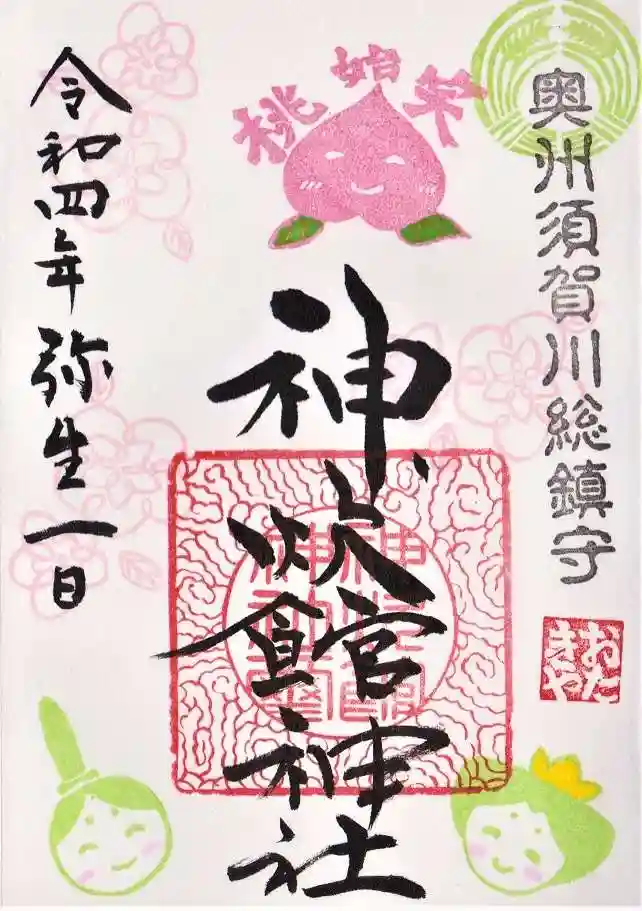 奥州須賀川総鎮守
おたきや
桃始笑
神炊館神社
令和四年弥生一日